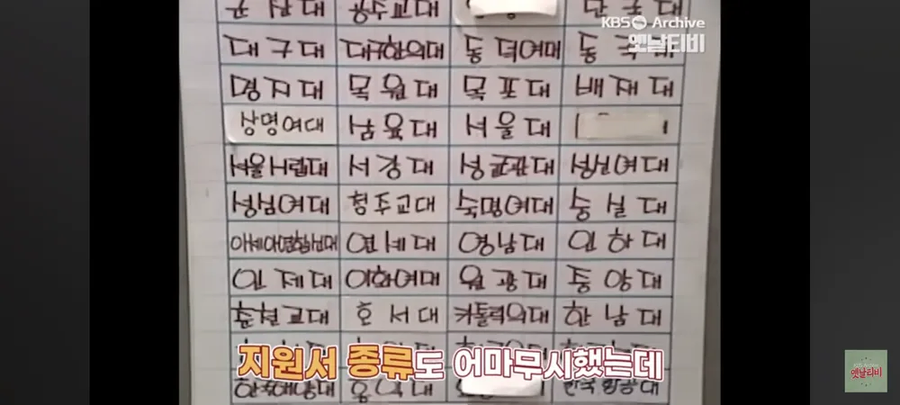 KBS Archive
옛날티비
대구대 대구한의대 동덕여대 동국대
명지대 목원대 목포대 배재대
상명여대 서울대
서울시립대 서강대 성균관대 성신여대
성심여대 청주교대 숙명여대 숭실대
연세대 영남대 인하대
인제대 이화여대 원광대 중앙대
춘천교대 호서대 카톨릭의대 한남대
지원서 종류도 어마무시했는데
한국항공대
옛날티비